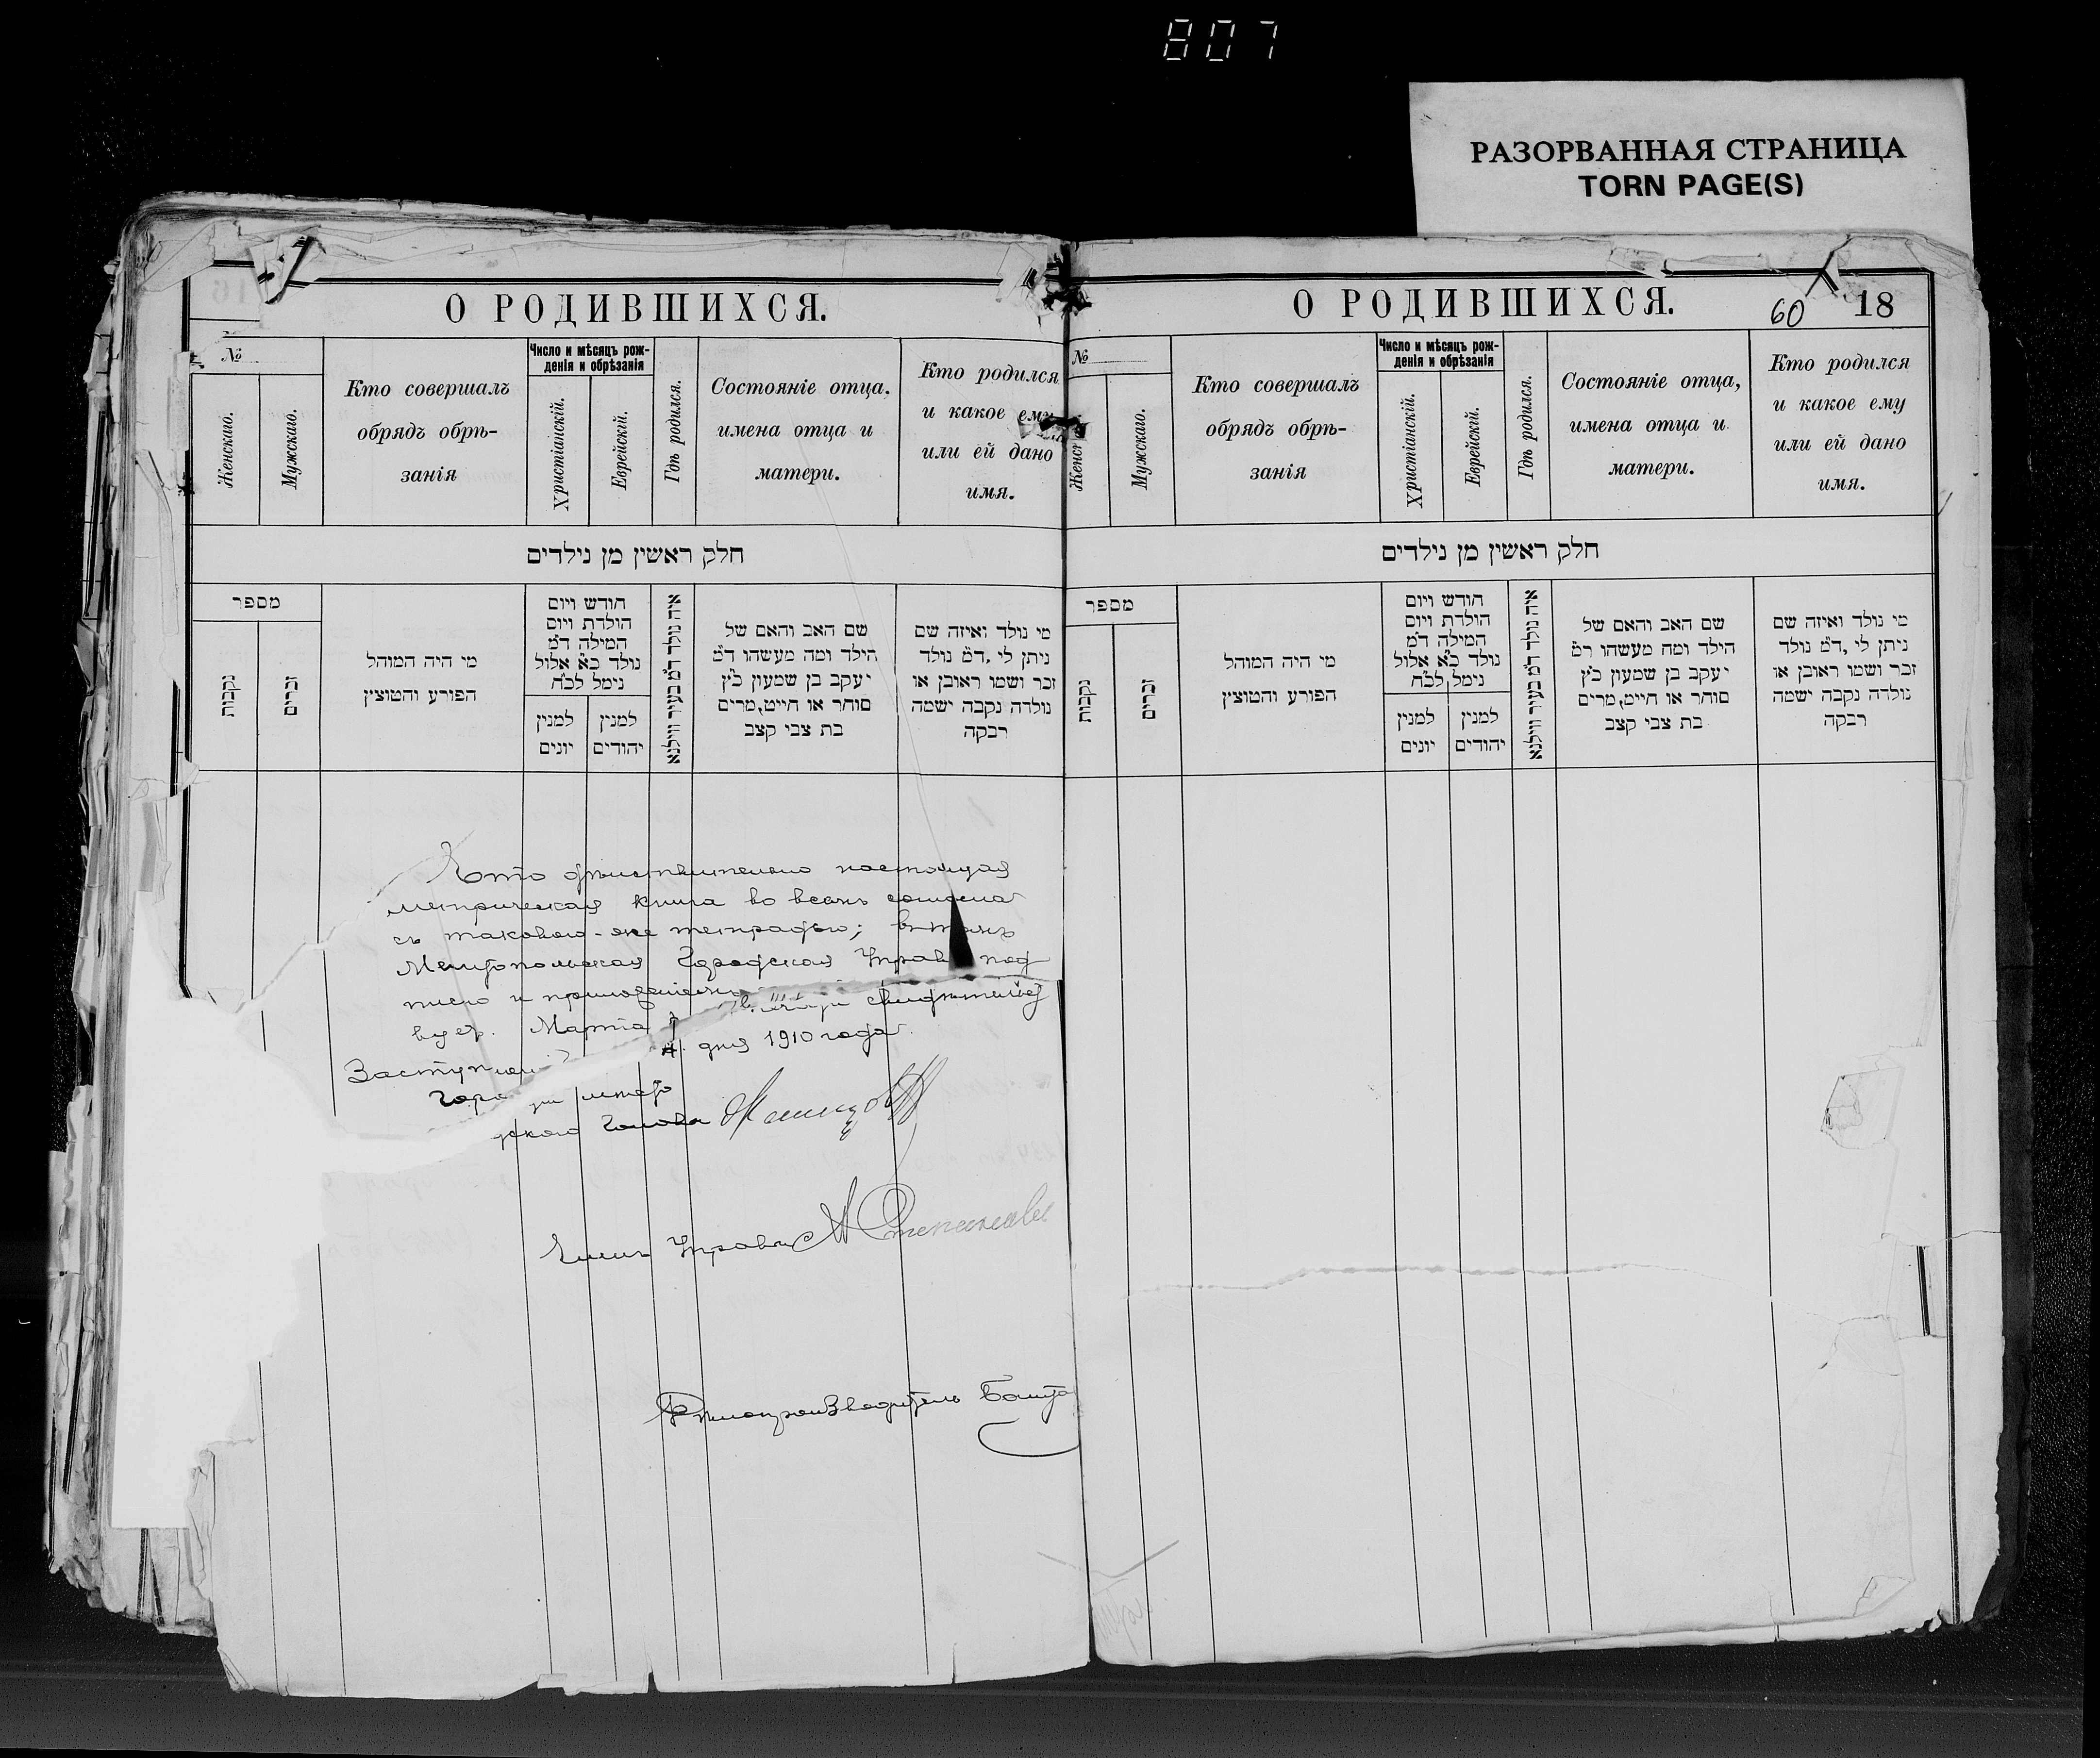 807
РАЗОРВАННАЯ СТРАНИЦА
TORN PAGE(S)
О РОДИВШИХСЯ.
№
Женскаго.
Мужскаго.
Кто совершалъ
обрядъ обрѣ-
занія
Число и мѣсяцъ рож-
денія и обрѣзанія
Христіанскій.
Еврейскій.
Гдѣ родился.
Состояніе отца,
имена отца и
матери.
Кто родился
и какое ему
или ей дано
имя.
חלק ראשין מן נילדים
מספר
נקבות
זכרים
מי היה המוהל
הפורע והמוצץ
חודש ויום
הולדת ויום
המילה ד״מ
נולד כ״א אלול
נימל לכ״ח
למנין
יונים
למנין
יהודים
איה נולד ד״מ בעיר ווילנא
שם האב והאם של
הילד ומה מעשהו ד״מ
יעקב בן שמעון כ״ץ
סוחר או חייט, מרים
בת צבי קצב
מי נולד ואיזה שם
ניתן לי, ד״מ נולד
זכר ושמו ראובן או
נולדה נקבה ישמה
רבקה
Что дѣйствительно настоящая
метрическая книга во всемъ согласна
съ таковою-же тетрадью; въ томъ
Мелитопольская Городская Управа под
писью и приложеніемъ печати свидѣтельст
вуетъ. Марта дня 1910 года.
Заступающій мѣсто
Городского Головы
Членъ Управы
Дѣлопроизводитель
О РОДИВШИХСЯ.
60
18
№
Женск
Мужскаго.
Кто совершалъ
обрядъ обрѣ-
занія
Число и мѣсяцъ рож-
денія и обрѣзанія
Христіанскій.
Еврейскій.
Гдѣ родился.
Состояніе отца,
имена отца и
матери.
Кто родился
и какое ему
или ей дано
имя.
חלק ראשין מן נילדים
מספר
נקבות
זכרים
מי היה המוהל
הפורע והמוצץ
חודש ויום
הולדת ויום
המילה ד״מ
נולד כ״א אלול
נימל לכ״ח
למנין
יונים
למנין
יהודים
איה נולד ד״מ בעיר ווילנא
שם האב והאם של
הילד ומה מעשהו ד״מ
יעקב בן שמעון כ״ץ
סוחר או חייט, מרים
בת צבי קצב
מי נולד ואיזה שם
ניתן לי, ד״מ נולד
זכר ושמו ראובן או
נולדה נקבה ישמה
רבקה